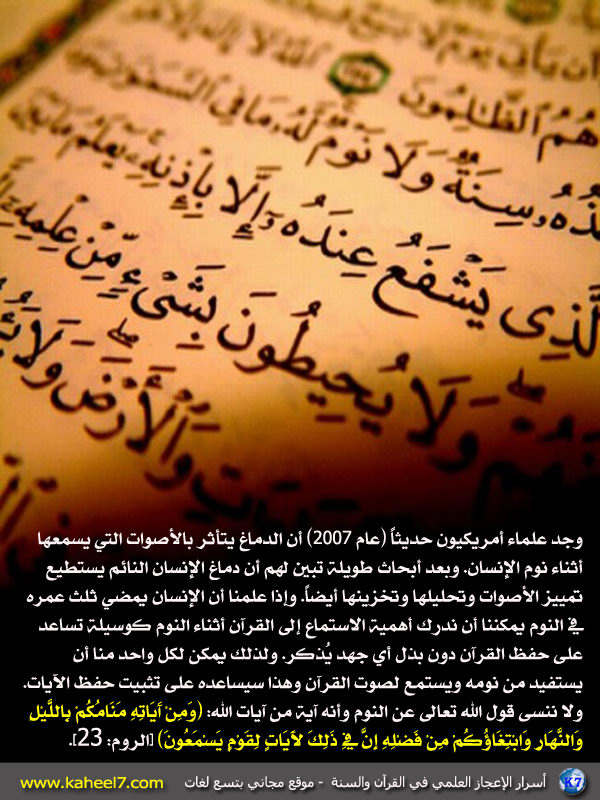 هُمُ ٱلظَّٰلِمُونَ ٱللَّهُ لَآ إِلَٰهَ
سِنَةٌ وَلَا نَوْمٌ لَّهُۥ مَا فِى ٱلسَّمَٰوَٰتِ
يَشْفَعُ عِندَهُۥٓ إِلَّا بِإِذْنِهِۦ يَعْلَمُ مَا بَيْنَ
وَلَا يُحِيطُونَ بِشَىْءٍ مِّنْ عِلْمِهِۦٓ
وَٱلْأَرْضَ وَلَا
وجد علماء أمريكيون حديثاً (عام 2007) أن الدماغ يتأثر بالأصوات التي يسمعها
أثناء نوم الإنسان. وبعد أبحاث طويلة تبين لهم أن دماغ الإنسان النائم يستطيع
تمييز الأصوات وتحليلها وتخزينها أيضاً. وإذا علمنا أن الإنسان يمضي ثلث عمره
في النوم يمكننا أن ندرك أهمية الاستماع إلى القرآن أثناء النوم كوسيلة تساعد
على حفظ القرآن دون بذل أي جهد يُذكر. ولذلك يمكن لكل واحد منا أن
يستفيد من نومه ويستمع لصوت القرآن وهذا سيساعده على تثبيت حفظ الآيات.
ولا ننسى قول الله تعالى عن النوم وأنه آية من آيات الله: (وَمِنْ آَيَاتِهِ مَنَامُكُمْ بِاللَّيْلِ
وَالنَّهَارِ وَابْتِغَاؤُكُمْ مِنْ فَضْلِهِ إِنَّ فِي ذَلِكَ لَآَيَاتٍ لِقَوْمٍ يَسْمَعُونَ) [الروم: 23].
أسرار الإعجاز العلمي في القرآن والسنة - موقع مجاني بتسع لغات www.kaheel7.com
K7